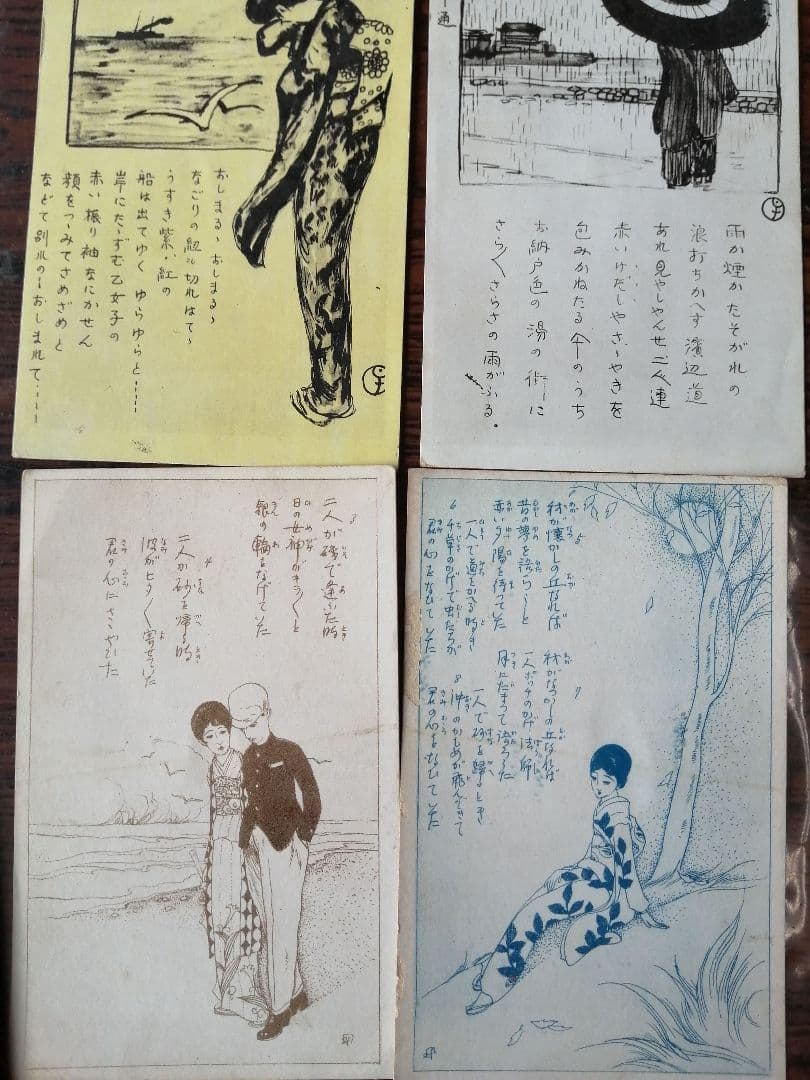 おしまるゝおしまるゝ
なごりの紐の切れはてゝ
うすき紫、紅の
船は出てゆく ゆらゆらと……
岸にたゝずむ乙女子の
赤い振り袖なにかせん
顔をつゝみてさめざめと
などて別れのゝおしまれて……
通
雨か煙かたそがれの
浪打ちかへす濱辺道
あれ見やしやんせ二人連
赤いけだしやさゝやきを
包みかねたる傘のうち
お納戸色の湯の街に
さら〱さらさの雨がふる。
3
二人が磯で逢ふた時
日の女神がキラ〱と
銀の輪をなげていた
4
二人が砂を帰る時
波がヒタ〱寄せていた
君の心にささやいた
5
秋が懐かしの丘なれば
昔の夢を語らうと
赤い夕陽を待っていた
6
一人で道をかへる時
千草のかげで虫たちが
君の心をなひていた
7
秋がなつかしの丘なれば
一人ボッチのかげ法師
月にだまって語った
8
一人で砂を帰るとき
沖のかもめが飛んできて
君の心をなひていた